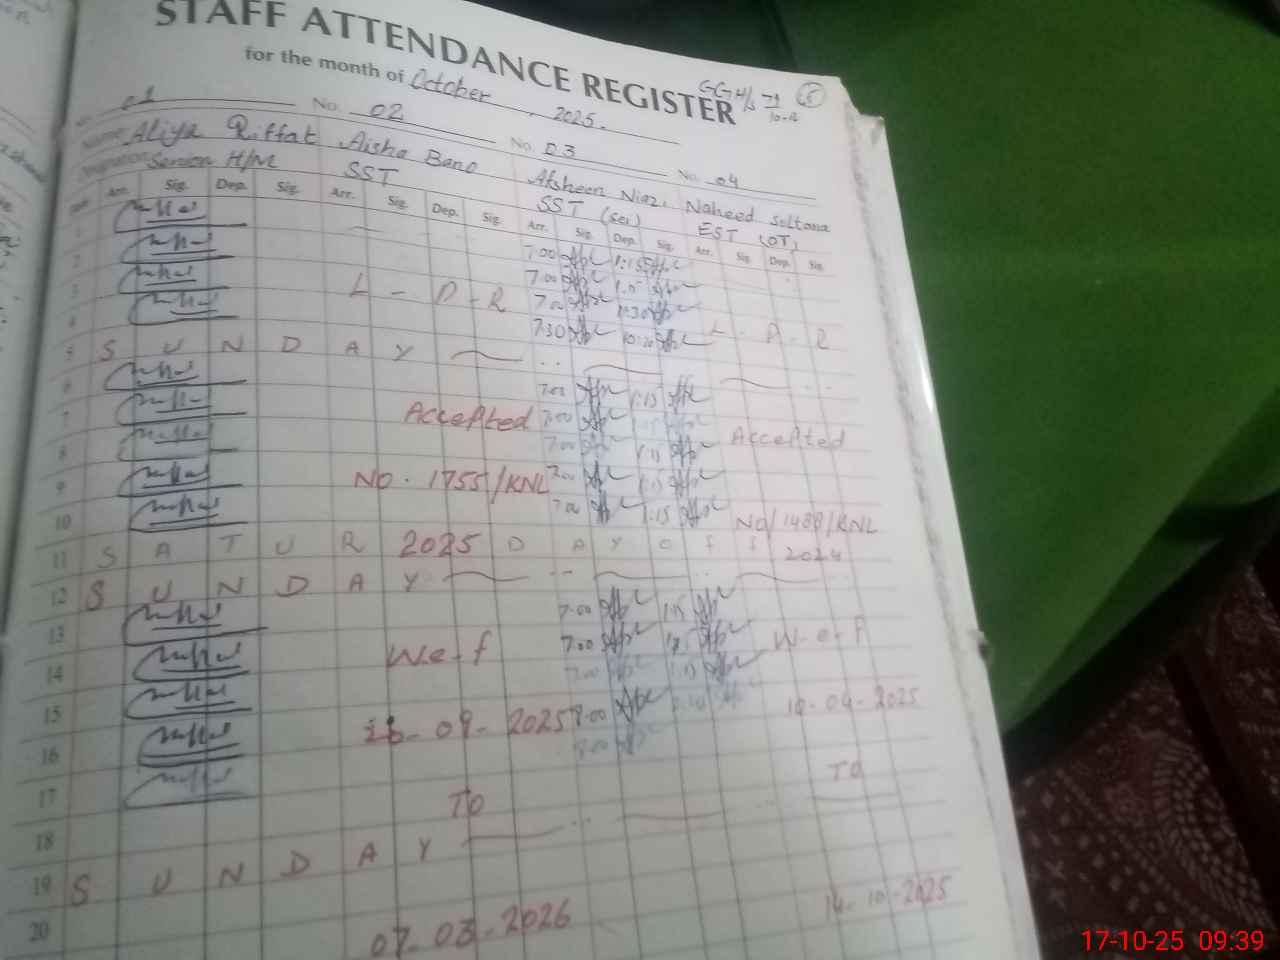 STAFF ATTENDANCE REGISTER
for the month of October 2025.
5
01 No. 02 No. 03 No. 04
Name Aliya Riffat Aisha Bano Afsheen Niaz. Naheed Sultana
Senior H/M SST SST (sci) EST (OT)
Arr. Sig. Dep. Sig. Arr. Sig. Dep. Sig. Arr. Sig. Dep. Sig. Arr. Sig. Dep. Sig.
1 7.00 1:15
2 7.00 1.15
3 L - P - R 7.00 1:30 L - P - R
4 7:30 10:20
5 S U N D A Y
6 7.00 1:15
7 Accepted 7.00 1:15 Accepted
8 7.00 1:15
9 No. 1755/KNL 7.00 1:15
10 7.00 1:15 No/1488/KNL
11 S A T U R 2025 D A Y O F F 2024
12 S U N D A Y
13 7.00 1.15
14 W.e.f 7.00 1:15 W.e.f
15 7.00 1:15
16 09-2025 7.00 04-2025
17 7.00 TO
18 TO
19 S U N D A Y
20 07-03-2026 14-10-2025
17-10-25 09:39